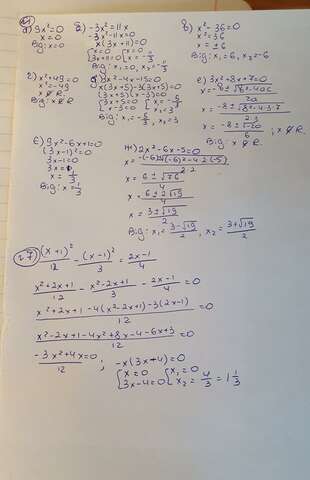 а) 9x²=0
x=0
Від: x=0
б) -3x²=11x
-3x²-11x=0
x(3x+11)=0
{x=0 {x=0
{3x+11=0 {x=-11/3
Від: x₁=0, x₂=-11/3
в) x²-36=0
x²=36
x=±6
Від: x₁=6, x₂=-6
г) x²+49=0
x²=-49
x∉R
Від: x∉R
д) 3x²-4x-15=0
x(3x+5)-3(3x+5)=0
(3x+5)(x-3)=0
{3x+5=0 {x=-5/3
{x-3=0 {x=3
Від: x₁=-5/3, x₂=3
е) 3x²+8x+7=0
x=(-8±√(8²-4·3·7))/(2·3)
x=(-8±√-20)/6
Від: x∉R
є) 9x²-6x+1=0
(3x-1)²=0
3x-1=0
3x=1
x=1/3
Від: x=1/3
ж) 2x²-6x-5=0
x=(-(-6)±√((-6)²-4·2·(-5)))/(2·2)
x=(6±√76)/4
x=(6±2√19)/4
x=(3±√19)/2
Від: x₁=(3-√19)/2, x₂=(3+√19)/2
№7 (x+1)²/12 - (x-1)²/3 = (2x-1)/4
(x²+2x+1)/12 - (x²-2x+1)/3 - (2x-1)/4 =0
(x²+2x+1-4(x²-2x+1)-3(2x-1))/12 =0
(x²-2x+1-4x²+8x-4-6x+3)/12 =0
(-3x²+4x=0)/12 ; -x(3x+4)=0
{x=0 {x₁=0
{3x-4=0 {x₂=4/3=1 1/3